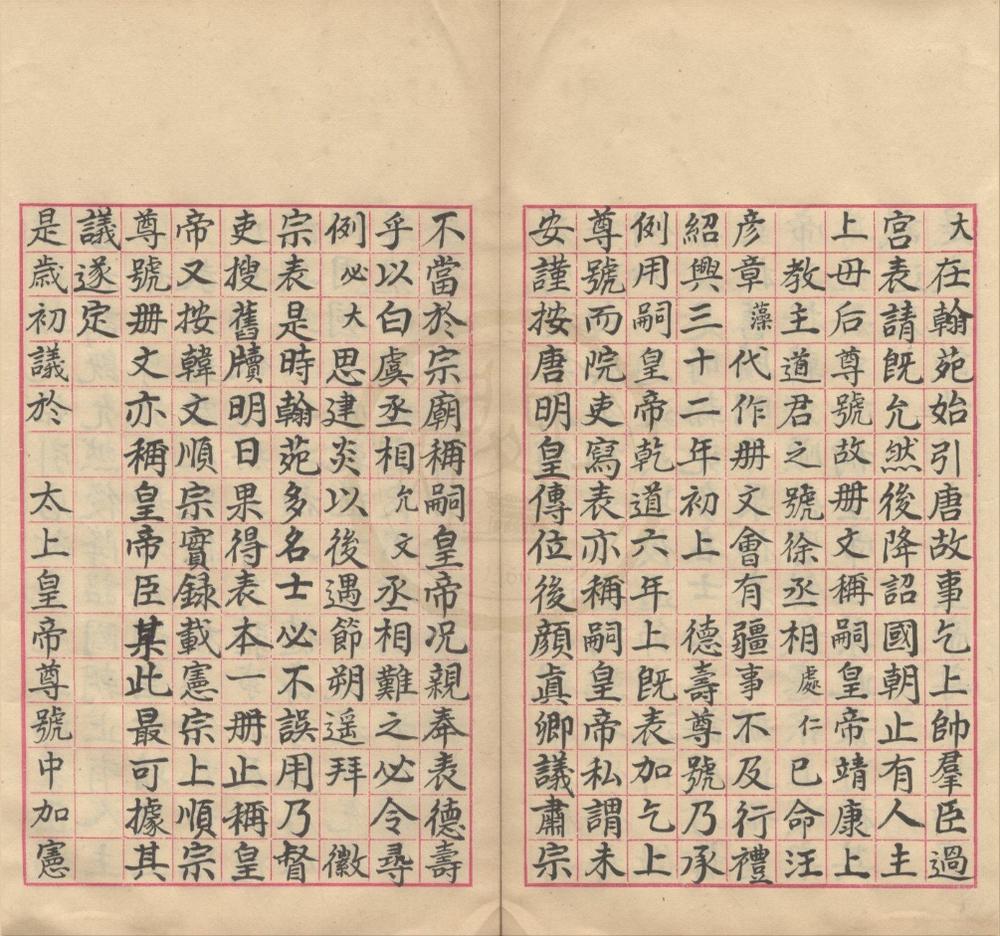 大在翰苑始引唐故事乞上帥羣臣過
宮表請既允然後降詔國朝止有人主
上母后尊號故册文稱嗣皇帝靖康上
教主道君之號徐丞相處仁已命汪
彦章藻代作册文會有疆事不及行禮
紹興三十二年初上　德壽尊號乃承
例用嗣皇帝乾道六年上既表加乞上
尊號而院吏寫表亦稱嗣皇帝私謂未
安謹按唐明皇傳位後顔眞卿議肅宗
不當於宗廟稱嗣皇帝况親奉表德壽
乎以白虞丞相允文丞相難之必令尋
例必大思建炎以後遇節朔遥拜　徽
宗表是時翰苑多名士必不誤用乃督
吏搜舊牘明日果得表本一册止稱皇
帝又按韓文順宗實録載憲宗上順宗
尊號册文亦稱皇帝臣某此最可據其
議遂定
是歲初議於　太上皇帝尊號中加憲